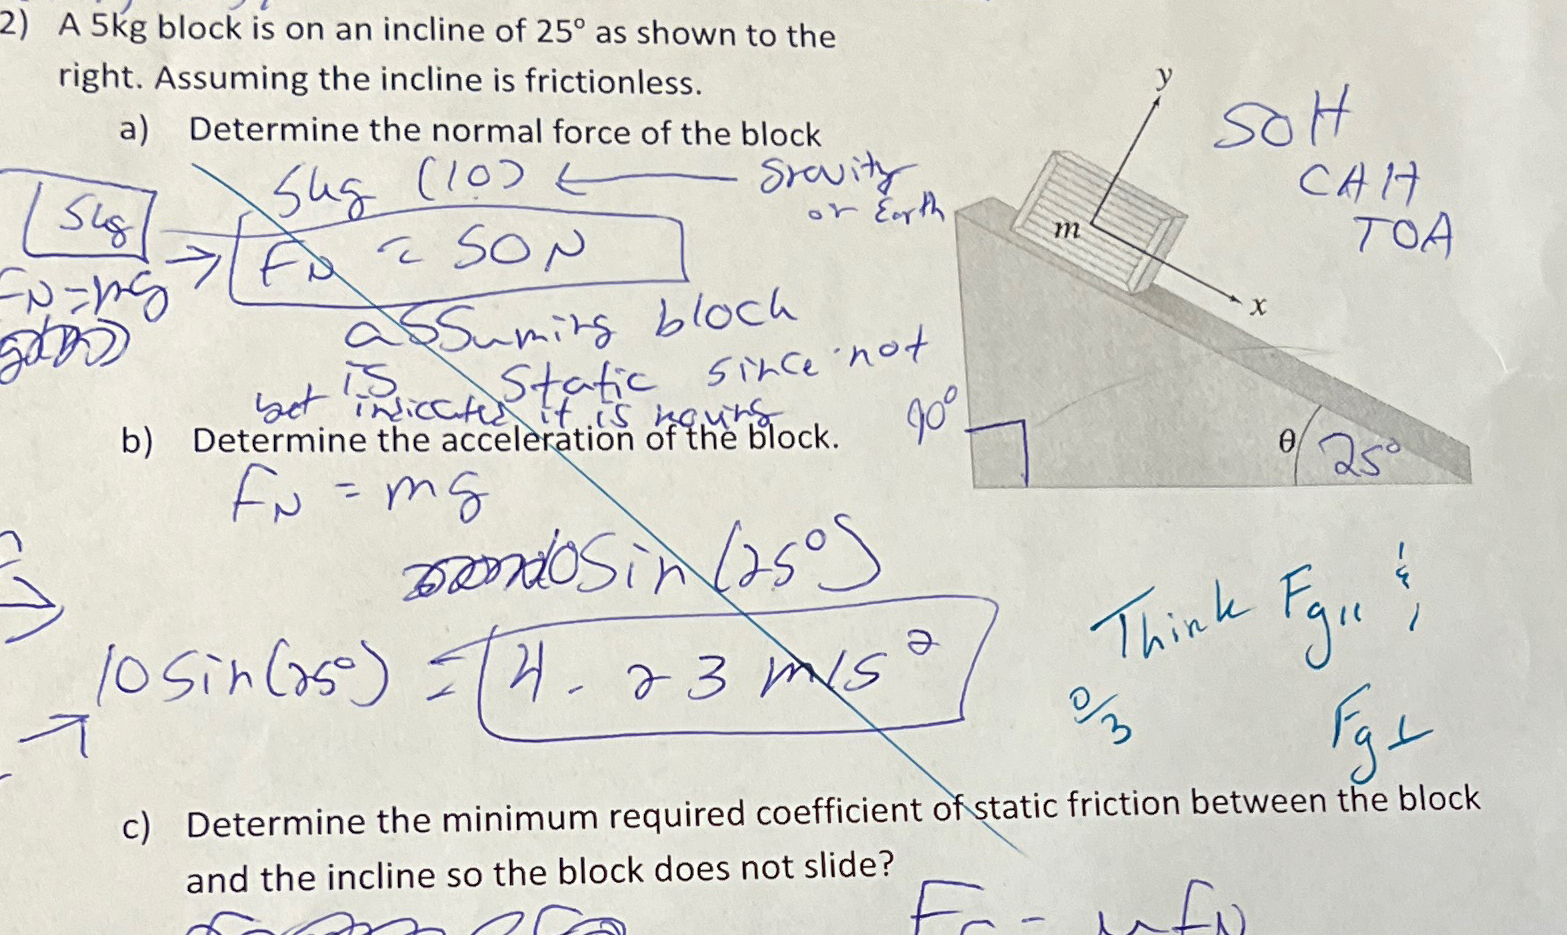 2) A 5kg block is on an incline of 25° as shown to the
right. Assuming the incline is frictionless.
a) Determine the normal force of the block
5kg (10) ← gravity
or Earth
5kg
FN = mg
→ FN = 50 N
assuming block
is static since not
bet indicated it is moving
y
m
x
SOH
CAH
TOA
90°
θ 25°
b) Determine the acceleration of the block.
FN = mg
sin (25°)
10 sin (25°) = 4.23 m/s²
Think Fg∥ &
Fg⊥
0/3
c) Determine the minimum required coefficient of static friction between the block
and the incline so the block does not slide?
= μ FN